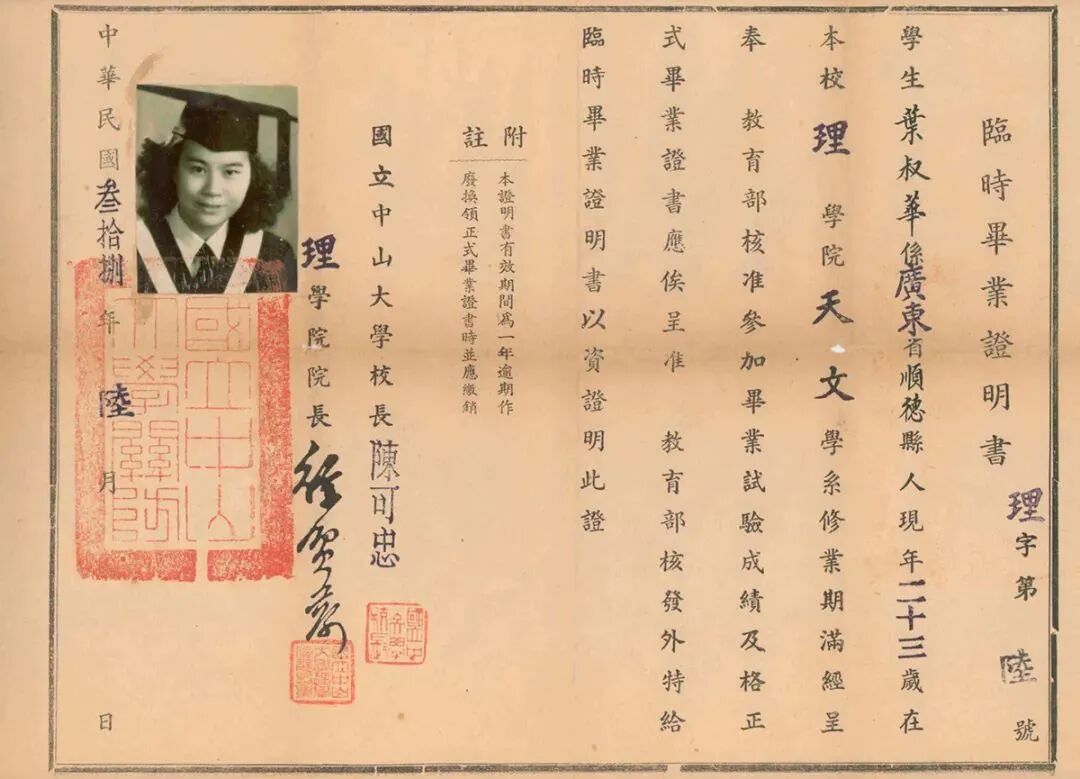 臨時畢業證明書
理字第陸號
學生葉叔華係廣東省順德縣人現年二十三歲在
本校理學院天文學系修業期滿經呈
奉教育部核准參加畢業試驗成績及格正
式畢業證書應俟呈准教育部核發外特給
臨時畢業證明書以資證明此證
附註
本證明書有效期間爲一年逾期作
廢換領正式畢業證書時並應繳銷
國立中山大學校長陳可忠
理學院院長徐賢恭
中華民國叁拾捌年陸月日
國立中山大學關防